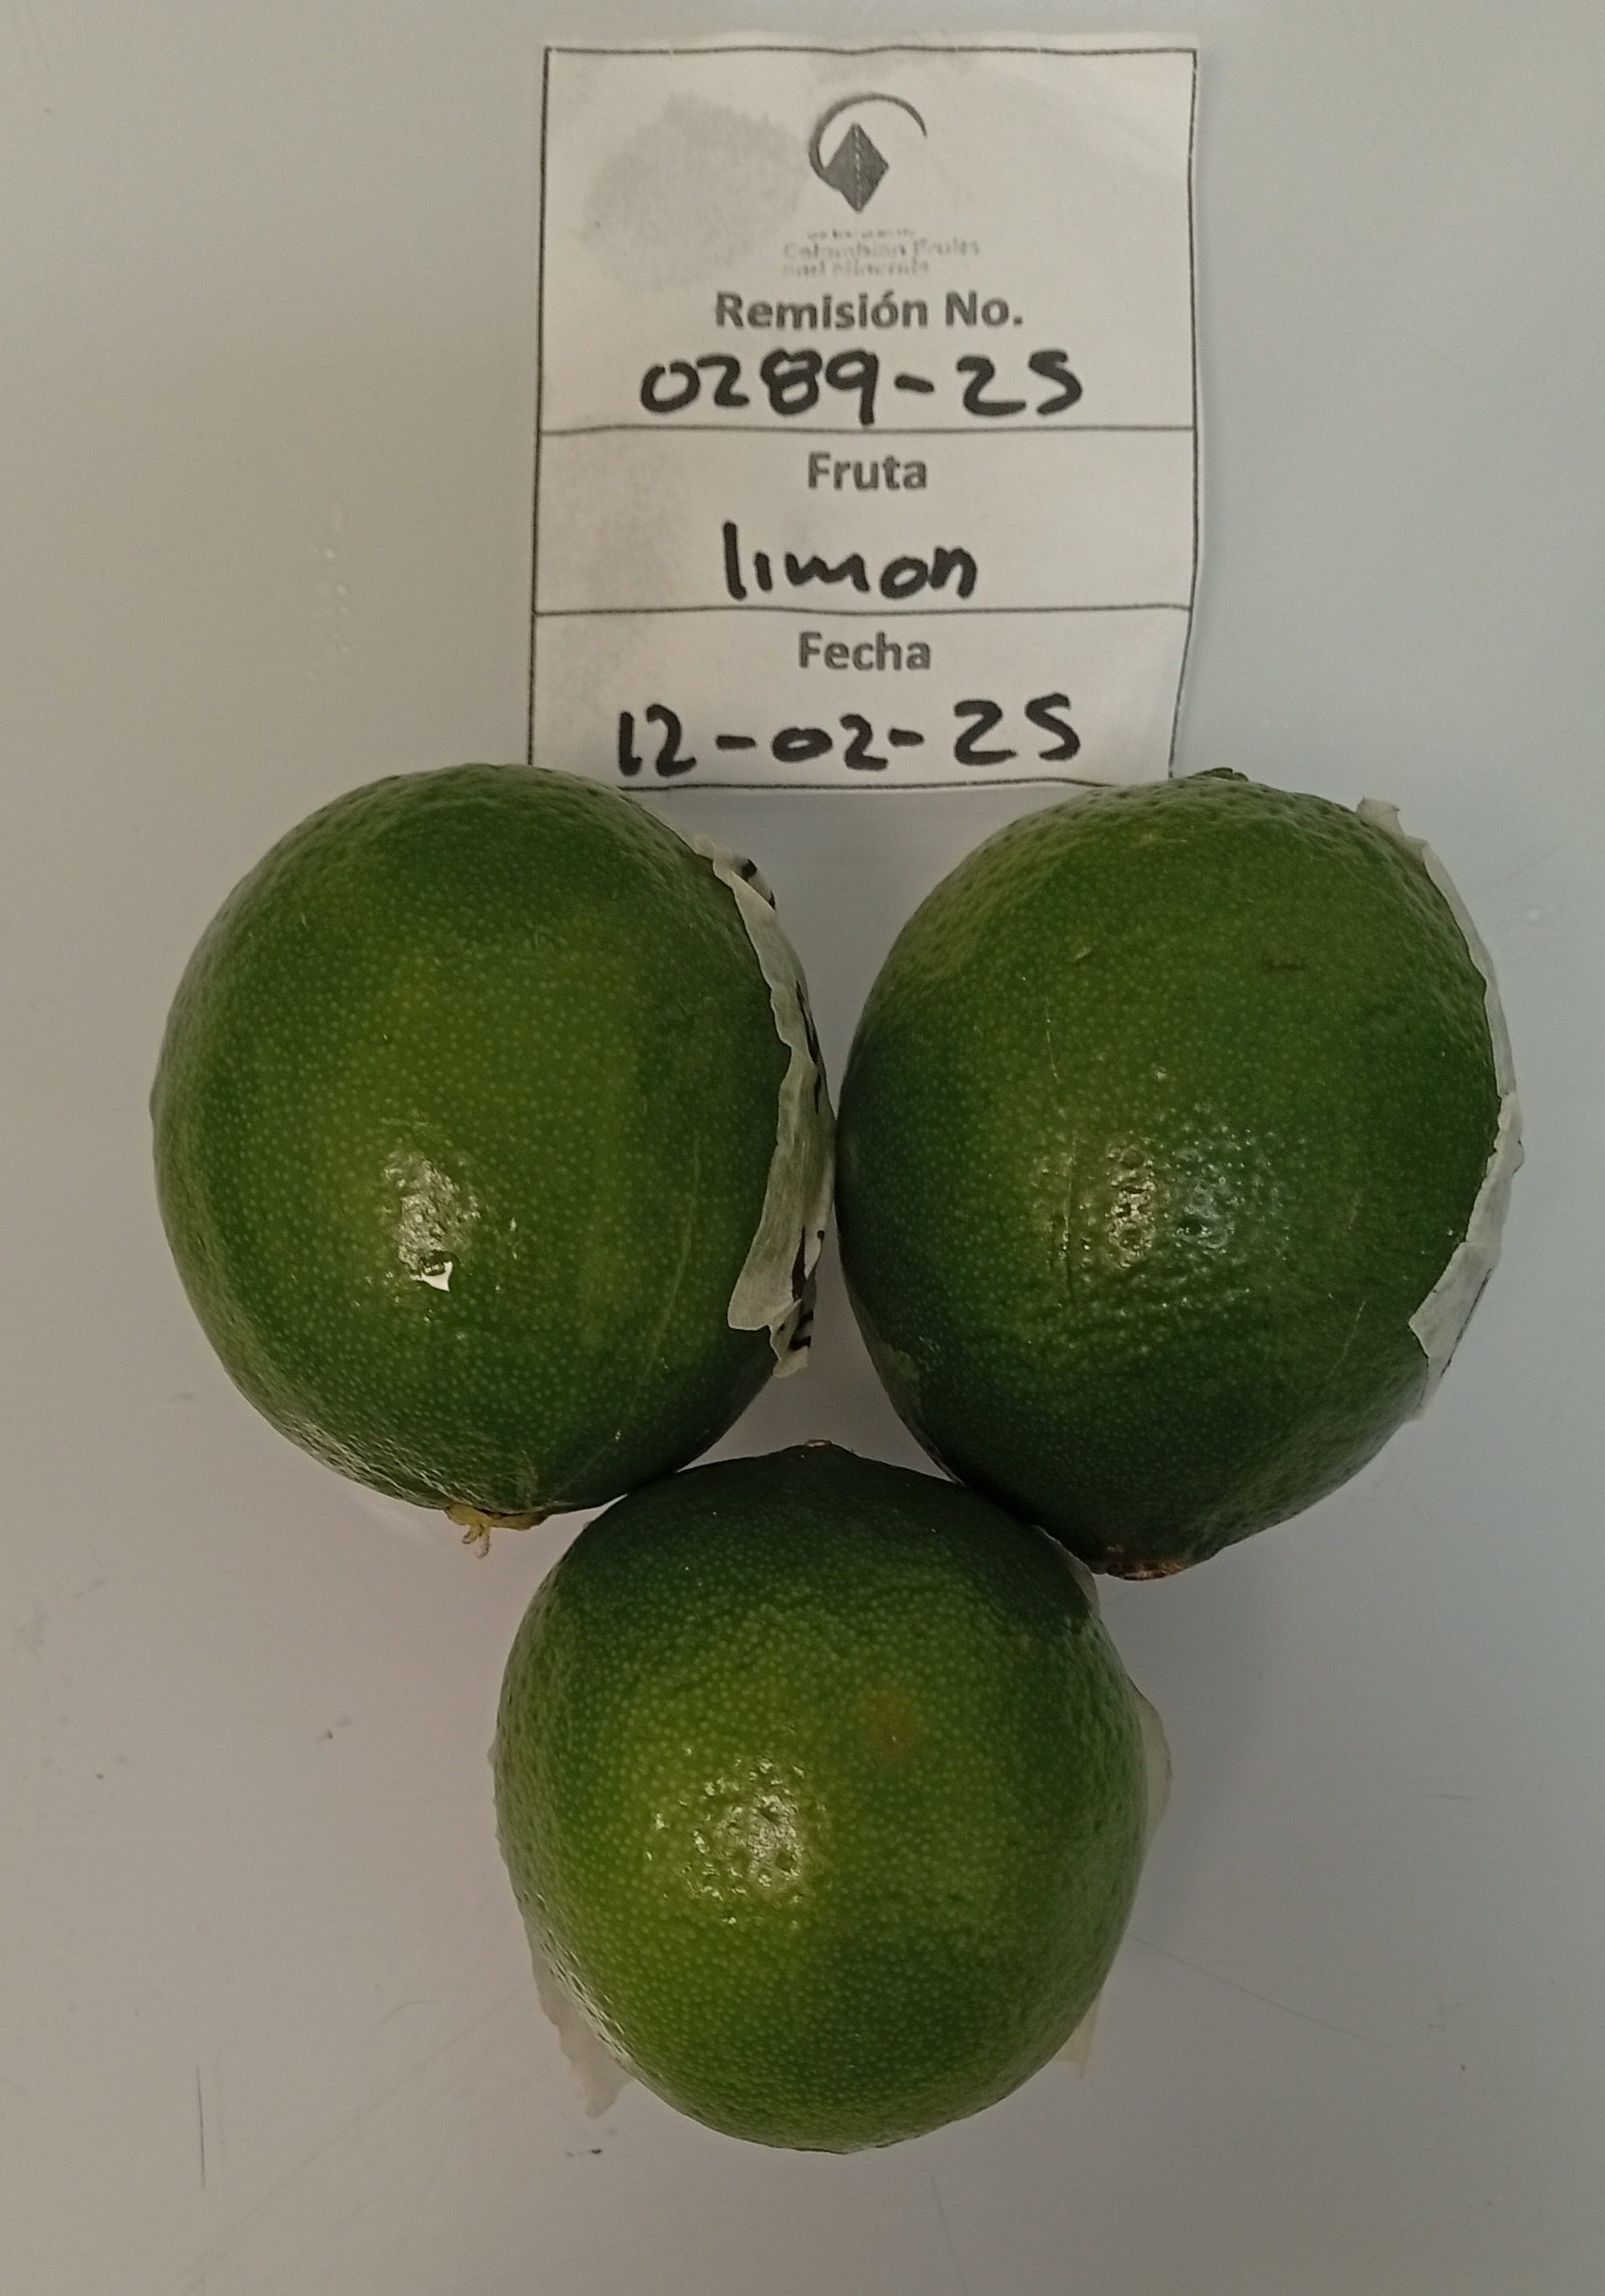 Colombian Fruits
and Minerals
Remisión No.
0289-25
Fruta
limon
Fecha
12-02-25